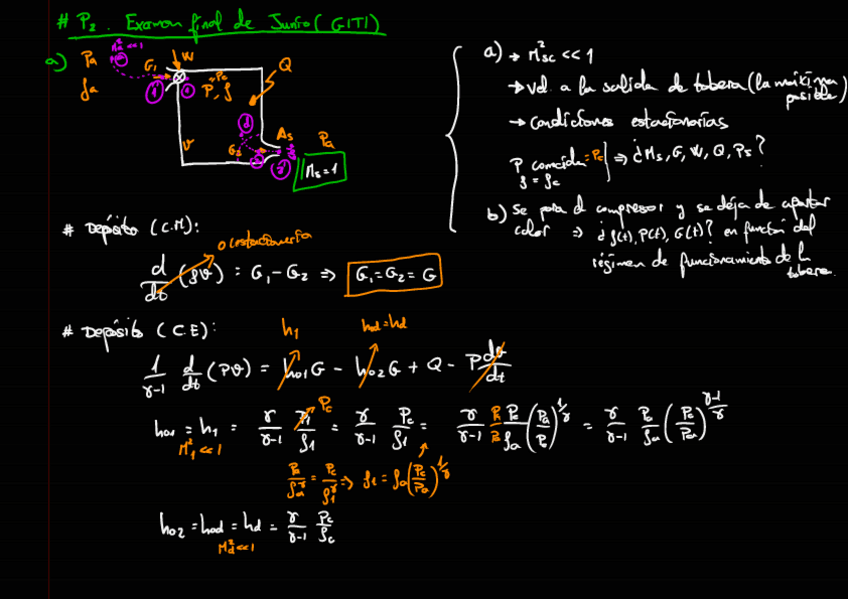 # P2. Examen final de Junio (GITI)
a)
Pa
ρa
M²∞ << 1
G1
W
Pc
P, ρ
Q
V
d
G2
As
Pa
Ms = 1
a) → M²sc << 1
→ vel. a la salida de tobera (la máxima posible)
→ condiciones estacionarias
P conocida = Pc
ρ = ρc
⇒ ¿Ms, G, W, Q, Ps?
b) Se para el compresor y se deja de aportar
calor ⇒ ¿ρ(t), P(t), G(t)? en función del
régimen de funcionamiento de la
tobera.
# Depósito (C.M):
0 estacionario
d/dt (ρV) = G1 - G2 ⇒ G1 = G2 = G
# Depósito (C.E):
h1
hod = hd
1/(γ-1) d/dt (PV) = ho1 G - ho2 G + Q - P dV/dt
ho1 = h1 = γ/(γ-1) P1/ρ1 = γ/(γ-1) Pc/ρ1 = γ/(γ-1) Pa/Pa Pc/ρa (Pa/Pc)^(1/γ) = γ/(γ-1) Pa/ρa (Pc/Pa)^((γ-1)/γ)
M1² << 1
Pc
Pa/ρa^γ = Pc/ρ1^γ ⇒ ρ1 = ρa (Pc/Pa)^(1/γ)
ho2 = hod = hd = γ/(γ-1) Pc/ρc
Md² << 1